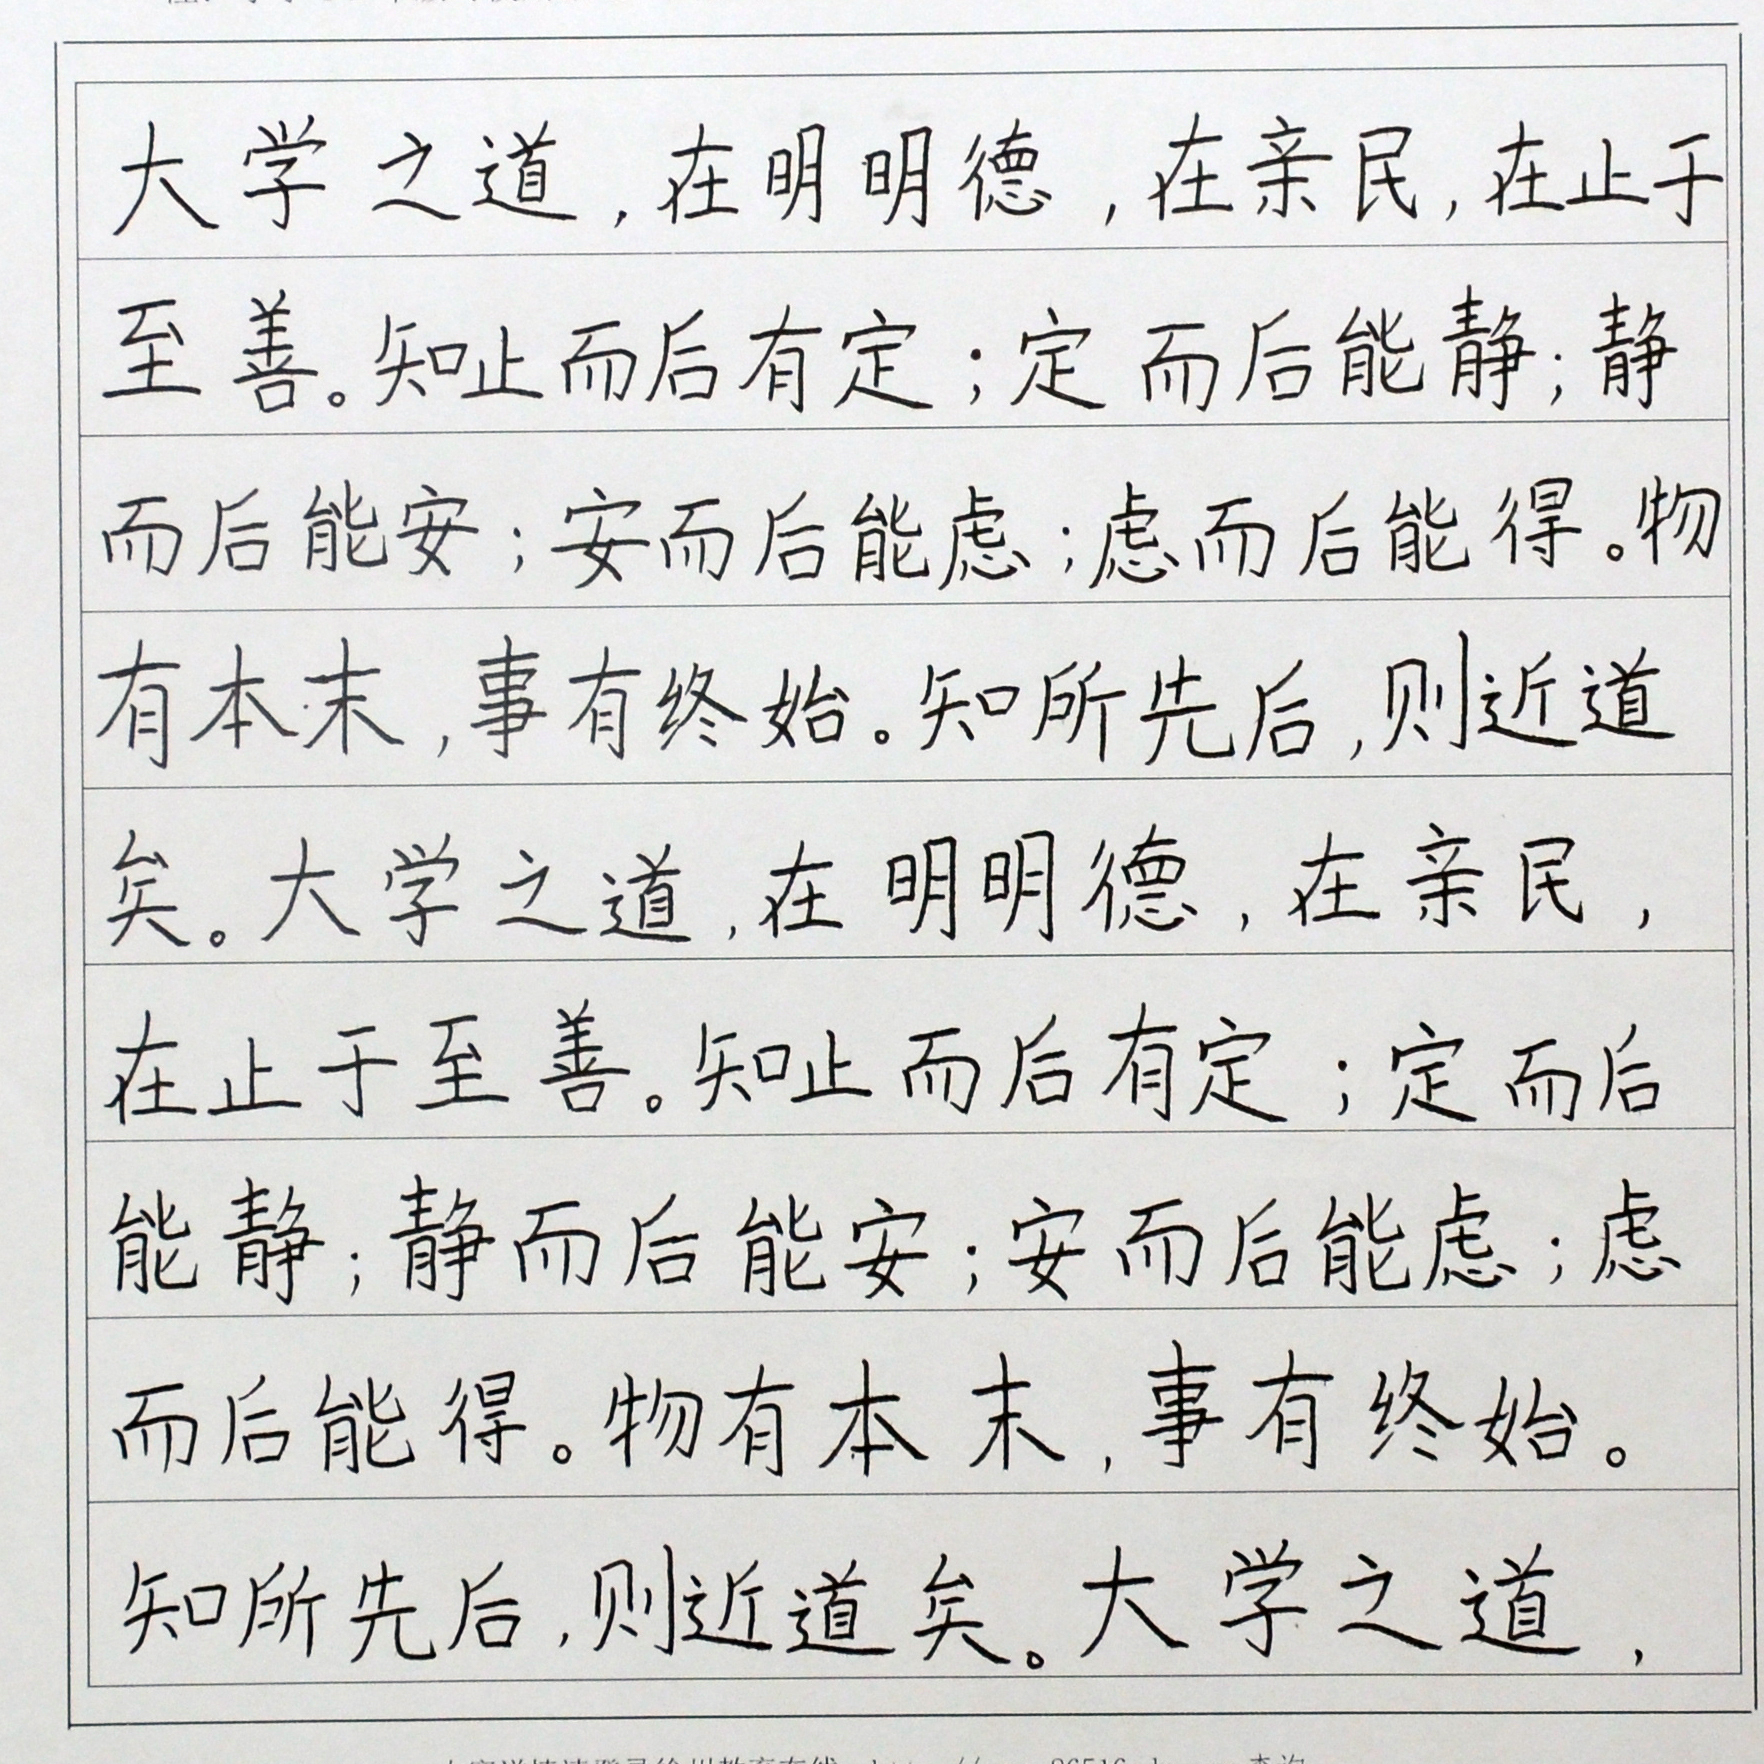 大学之道,在明明德,在亲民,在止于
至善。知止而后有定;定而后能静;静
而后能安;安而后能虑;虑而后能得。物
有本末,事有终始。知所先后,则近道
矣。大学之道,在明明德,在亲民,
在止于至善。知止而后有定;定而后
能静;静而后能安;安而后能虑;虑
而后能得。物有本末,事有终始。
知所先后,则近道矣。大学之道,